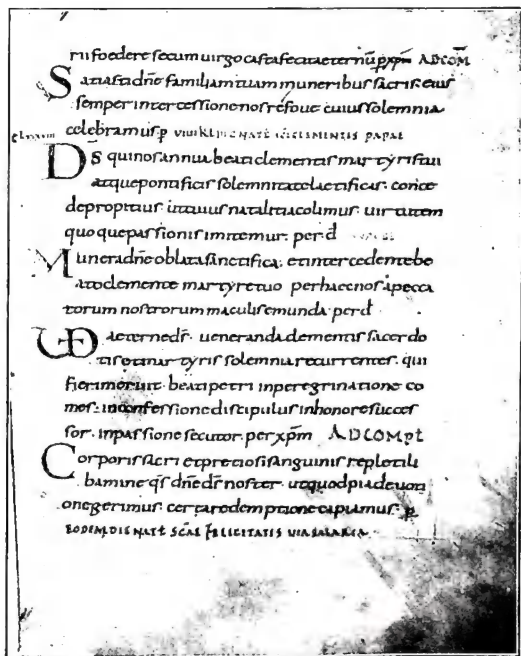 rii foedere secum uirgo casta fecit aeternu p xpm AD COM
Satiasti dne familiam tuam muneribus sacris eius
semper intercessione nos refoue cuius solemnia
celebramus p VIIII KL DEC NAT SCI CLEMENTIS PAPAE
Ds qui nos annua beati clementis martyris tui
atque pontificis solemnitate laetificas conce
de propitius ut cuius natalitia colimus uirtutem
quoque passionis imitemur per d
Munera dne oblata sanctifica et intercedente be
ato clemente martyre tuo per haec nos a pecca
torum nostrorum maculis emunda per d
UD aeterne ds ueneranda clementis sacerdo
tis et martyris solemnia recurrentes qui
fieri meruit beati petri in peregrinatione co
mes in confessione discipulus in honore succes
sor in passione secutor per xpm AD COMPL
Corporis sacri et pretiosi sanguinis repleti li
bamine qs dne ds noster ut quod pia deuoti
one gerimus certa redemptione capiamus p
EODEM DIE NAT SCAE FELICITATIS UIA SALARIA